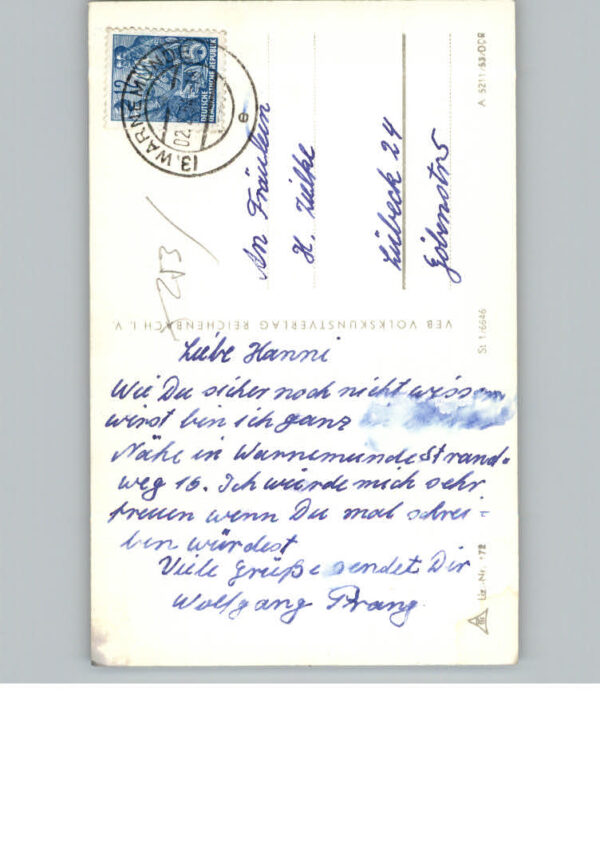 Liebe Hanni
Wie Du sicher noch nicht wissen
wirst bin ich ganz
Nähe in Warnemünde Strand-
weg 16. Ich würde mich sehr
freuen wenn Du mal schrei-
ben würdest
Viele Grüße sendet Dir
Wolfgang Prang
An Fräulein
H. Zielke
Lübeck 24
VEB VOLKSKUNSTVERLAG REICHENBACH I. V.
A 5211/53/DDR
St 1/6646
Liz.-Nr. 172
WARNEMÜNDE
02.
DEUTSCHE
DEMOKRATISCHE REPUBLIK
253